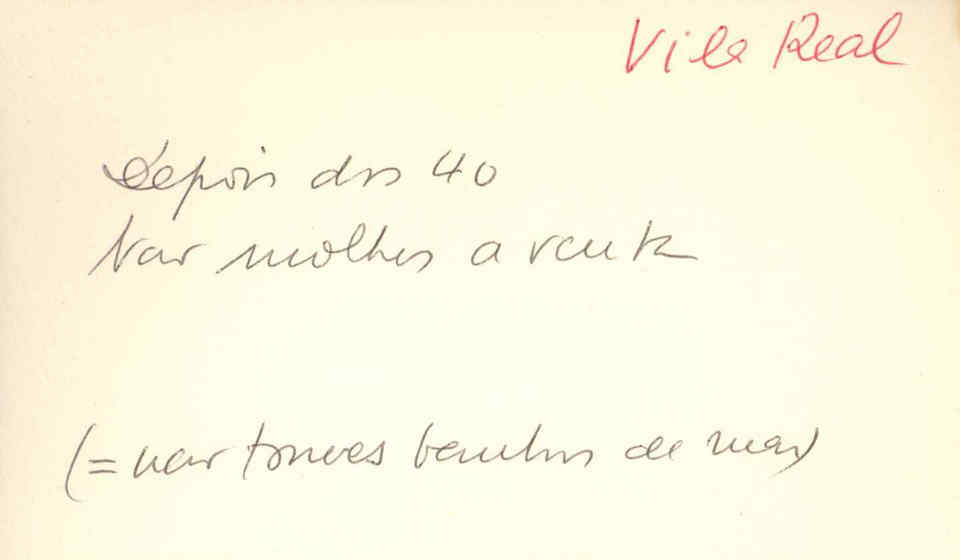 Vila Real
Depois dos 40
Não molhes a
(= não tomes banhos de mar)